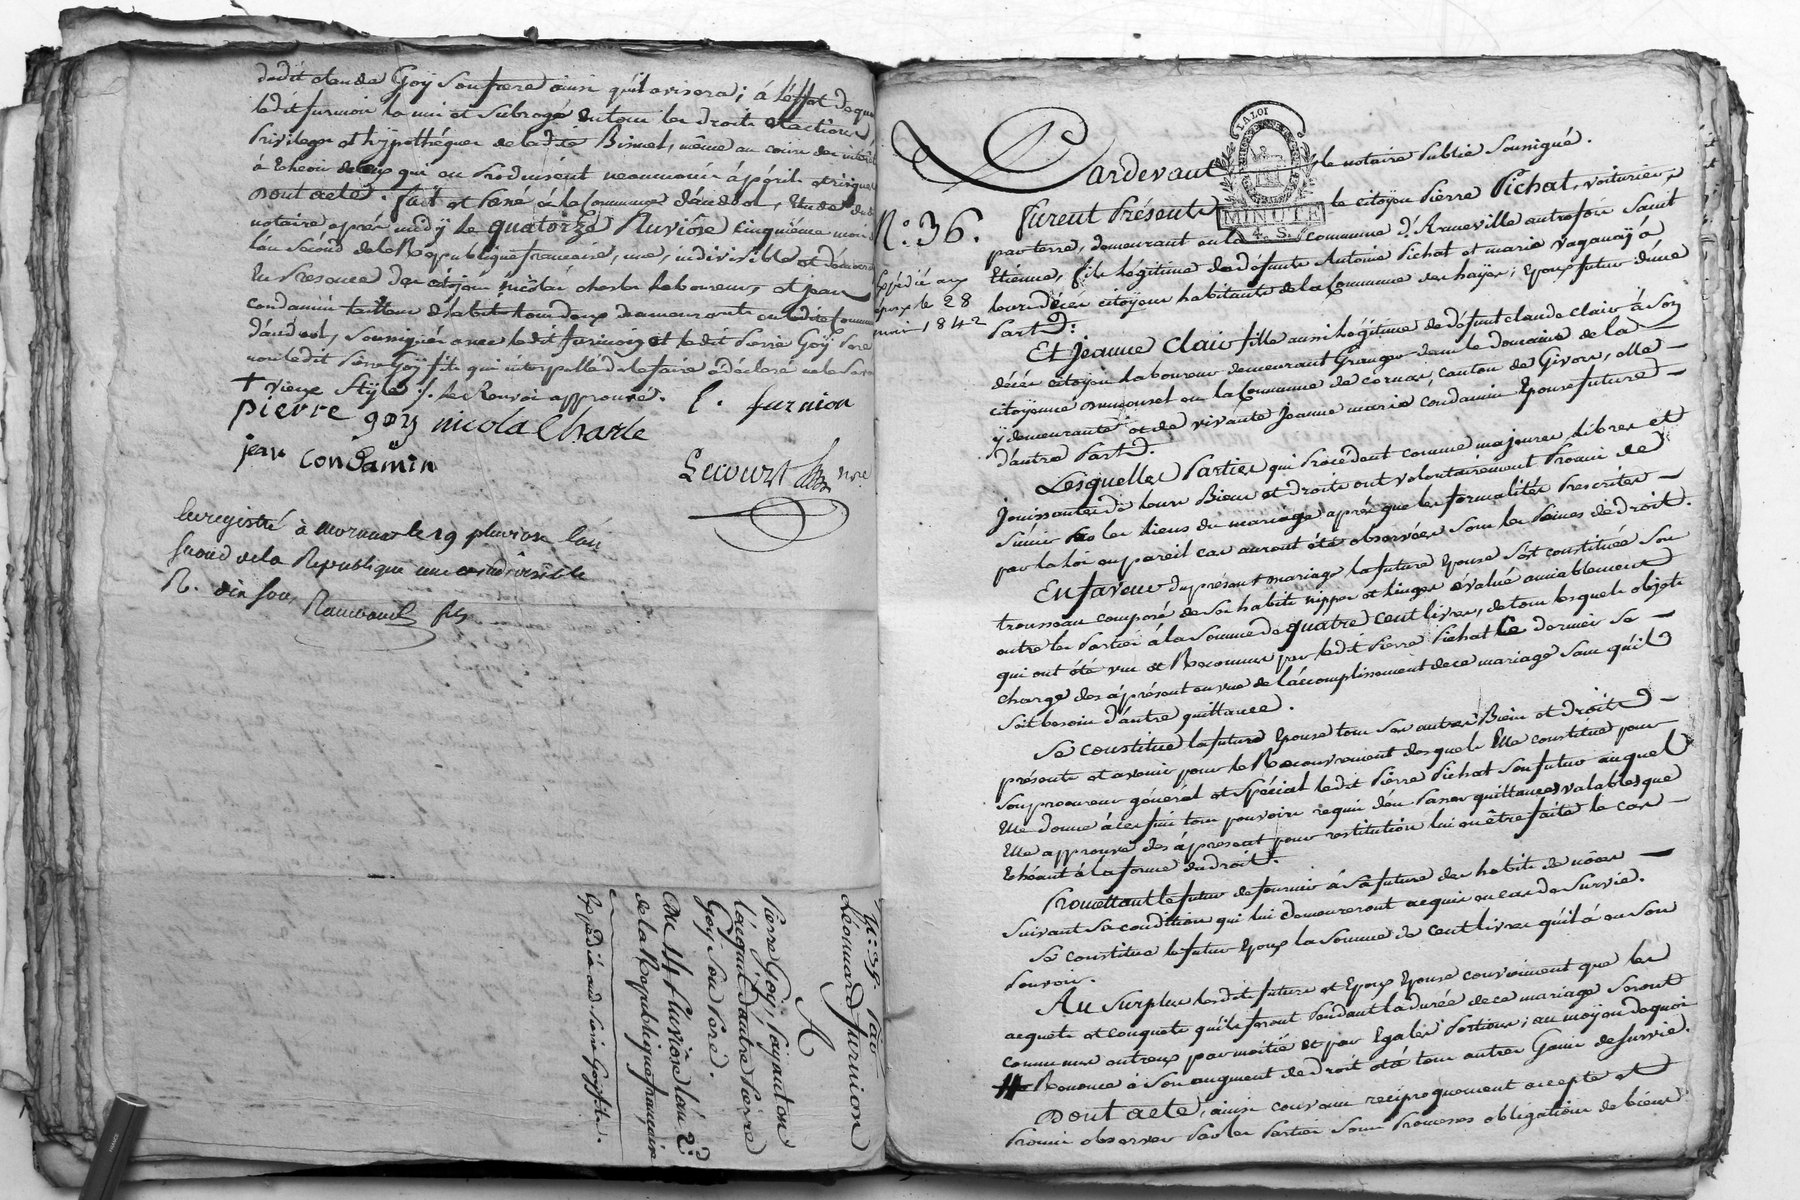 dudit claude Goÿ Son frere ainsi qu'il avisera; à l'effet de quoi
ledit furnion la mis et Subrogé en tous les droits et actions
Privileges et hÿpothéques de ladite Bissuel, même au cours des intérêts
à Echeoir de ceux qui en Produisent neanmoins à péril et risques
Dont acte. fait et Passé à la Commune d'andeol, Etude dudit
notaire après midÿ Le quatorze Pluviôse cinquième mois
L'an Second de la Republique francaise, une, indivisible et démocratique
En Presence des citoÿens nicolas charles Laboureur, et jean
Condamin tailleur d'habits tous deux demeurants en ladite Commune
d'andeol, Soussignés avec ledit furnion et ledit Pierre Goÿ Pere
non ledit Pierre Goÿ fils qui interpellé de le faire a déclaré ne le Savoir
+ vieux Stÿle ./. Le Renvoi approuvé.
pierre goy nicola Charle L. furnion
jean condamin
Lecourt nre.
Enregistré à mornant le 19 pluviose L'an
Second de la Republique une et indivisible
R. dix sous
N.o 35. Par
Léonnard furnion
A
Pierre Goÿ, Paÿant en
L'acquit d'autre Pierre
Goÿ Son Pere.
Du 14 Pluviôse L'an 2.d
de la Republique francaise
Expédié aud. Pierre Goÿ fils.
Pardevant le notaire Public Soussigné.
LA LOI
MINUTE
4. S.
N.o 36.
Expédié aux
époux le 28
mars 1842
Furent Présents le citoÿen Pierre Pichat, voiturier
par terre, demeurant en la commune d'. Armeville autrefois Saint
Etienne, fils légitime de défunts Antoine Pichat et marie vaganaÿ à
leurs décès citoÿens habitants de la Commune des hayes; Epoux futur d'une
Part:
Et Jeanne Clair fille aussi Légitime de défunt claude clair à Son
décès citoÿen Laboureur demeurant Granger dans le domaine de la
citoÿenne en la Commune de cornas, canton de Givors, elle
ÿ demeurante et de vivante Jeanne marie condamin Epouse future
d'autre Part.
Lesquelles Parties qui Procèdent comme majeures libres et
jouissantes de leurs Biens et droits ont volontairement Promis de
S'unir par les liens du mariage après que les formalités Prescrites
par la loi en pareil cas auront été observées Sous les Peines de droit.
En faveur du présent mariage la future Epouse S'est constituée Son
trousseau composé de Ses habits nippes et linges évalué amiablement
entre les Parties à la Somme de quatre cent livres, de tous lesquels objets
qui ont été vus et Reconnus par ledit Pierre Pichat Ce dernier Se
charge dès àprésent en vue de l'accomplissement de ce mariage Sans qu'il
Soit besoin d'autre quittance.
Se constitue la future Epouse tous Ses autres Biens et droits
présents et avenir pour le Recouvrement desquels Elle constitue pour
Son procureur général et Spécial ledit Pierre Pichat Son futur auquel
Elle donne à ces fins tous pouvoirs requis d'en Passer quittances valables que
Elle approuve dès àpresent pour restitution lui en être faite le cas
Echéant à la forme du droit.
Promettant le futur de fournir à Sa future des habits de nôces
Suivant Sa condition qui lui demeureront acquis en cas de Survie.
Se constitue le futur Epoux la Somme de cent livres qu'il a en Son
Pouvoir.
Au Surplus lesdits futurs et Epoux Epouse conviennent que les
acquets et conquets qu'ils feront Pendant la durée de ce mariage Seront
communs entreux par moitié et par Egales Portions; au moÿen de quoi
# Renonce à Son augment de droit et à tous autres Gains de Survie.
Dont acte, ainsi convenu reciproquement accepté et
Promis observer Par les Parties Sous Promesses obligations de biens